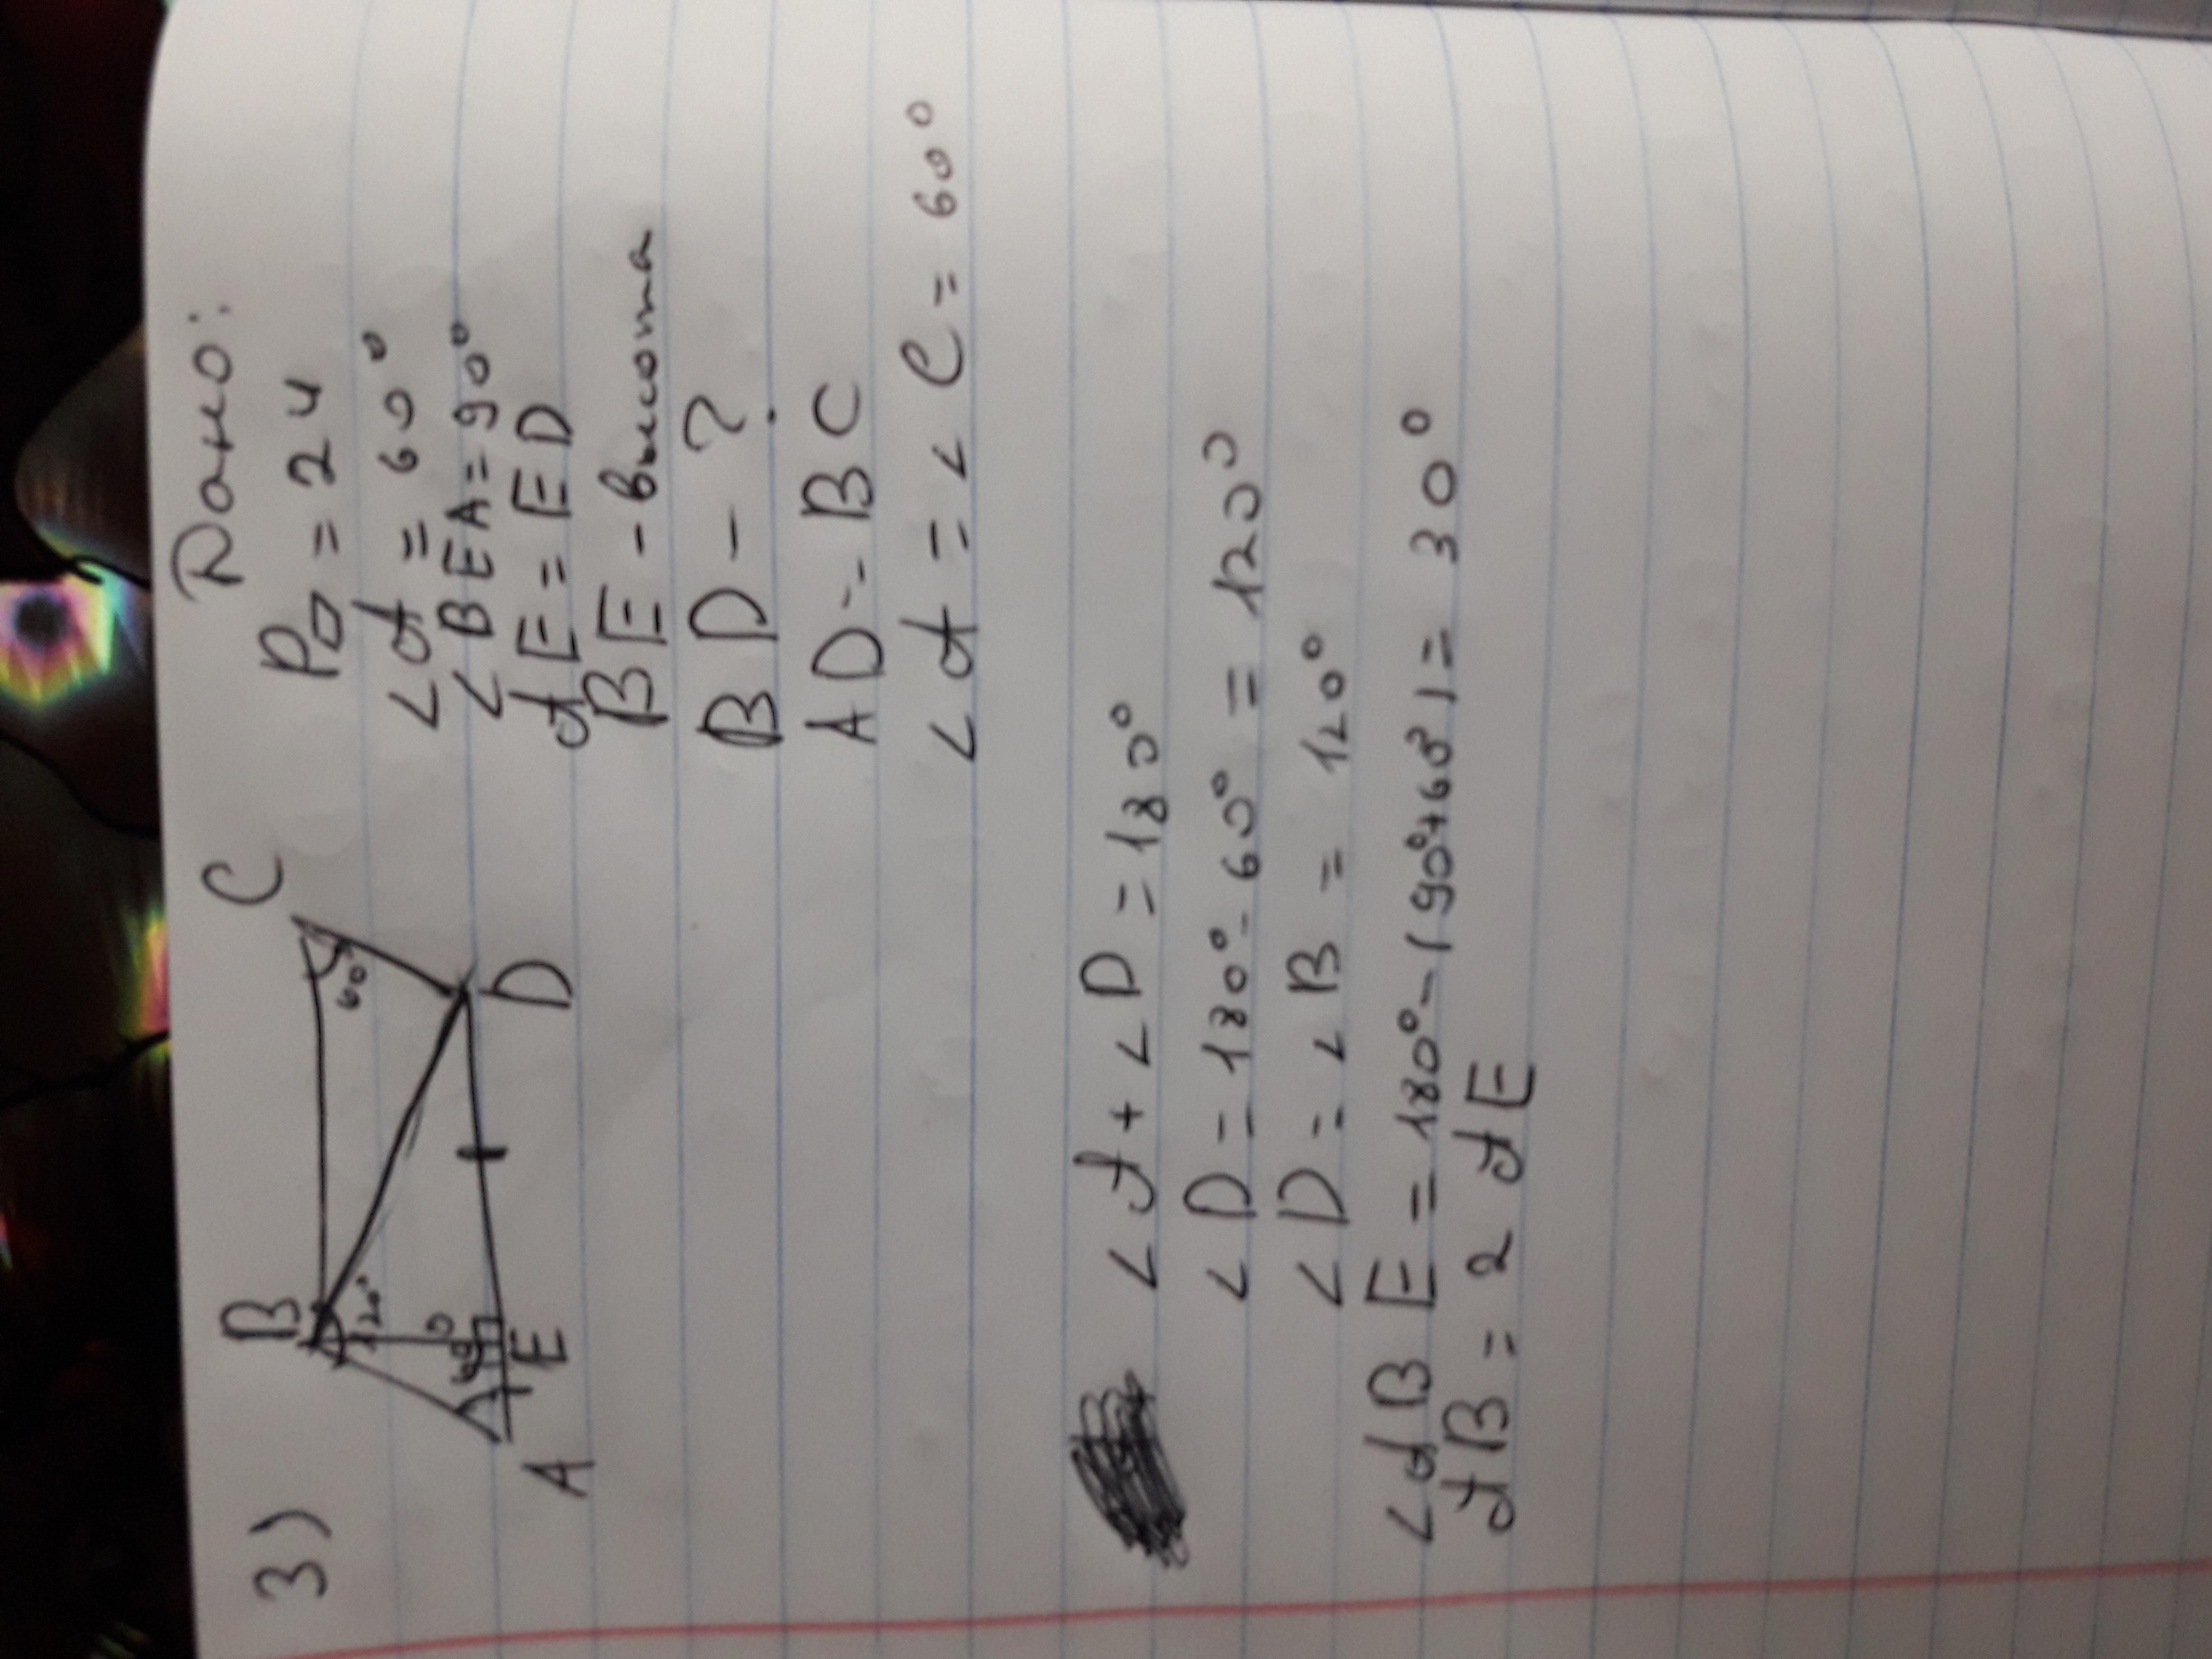 3)
B
C
120°
60°
60°
A
E
D
Дано:
P▱ = 24
∠A = 60°
∠BEA = 90°
AE = ED
BE - высота
BD - ?
AD - BC
∠A = ∠C = 60°
∠A + ∠D = 180°
∠D = 180° - 60° = 120°
∠D = ∠B = 120°
∠ABE = 180° - (90° + 60°) = 30°
AB = 2 AE